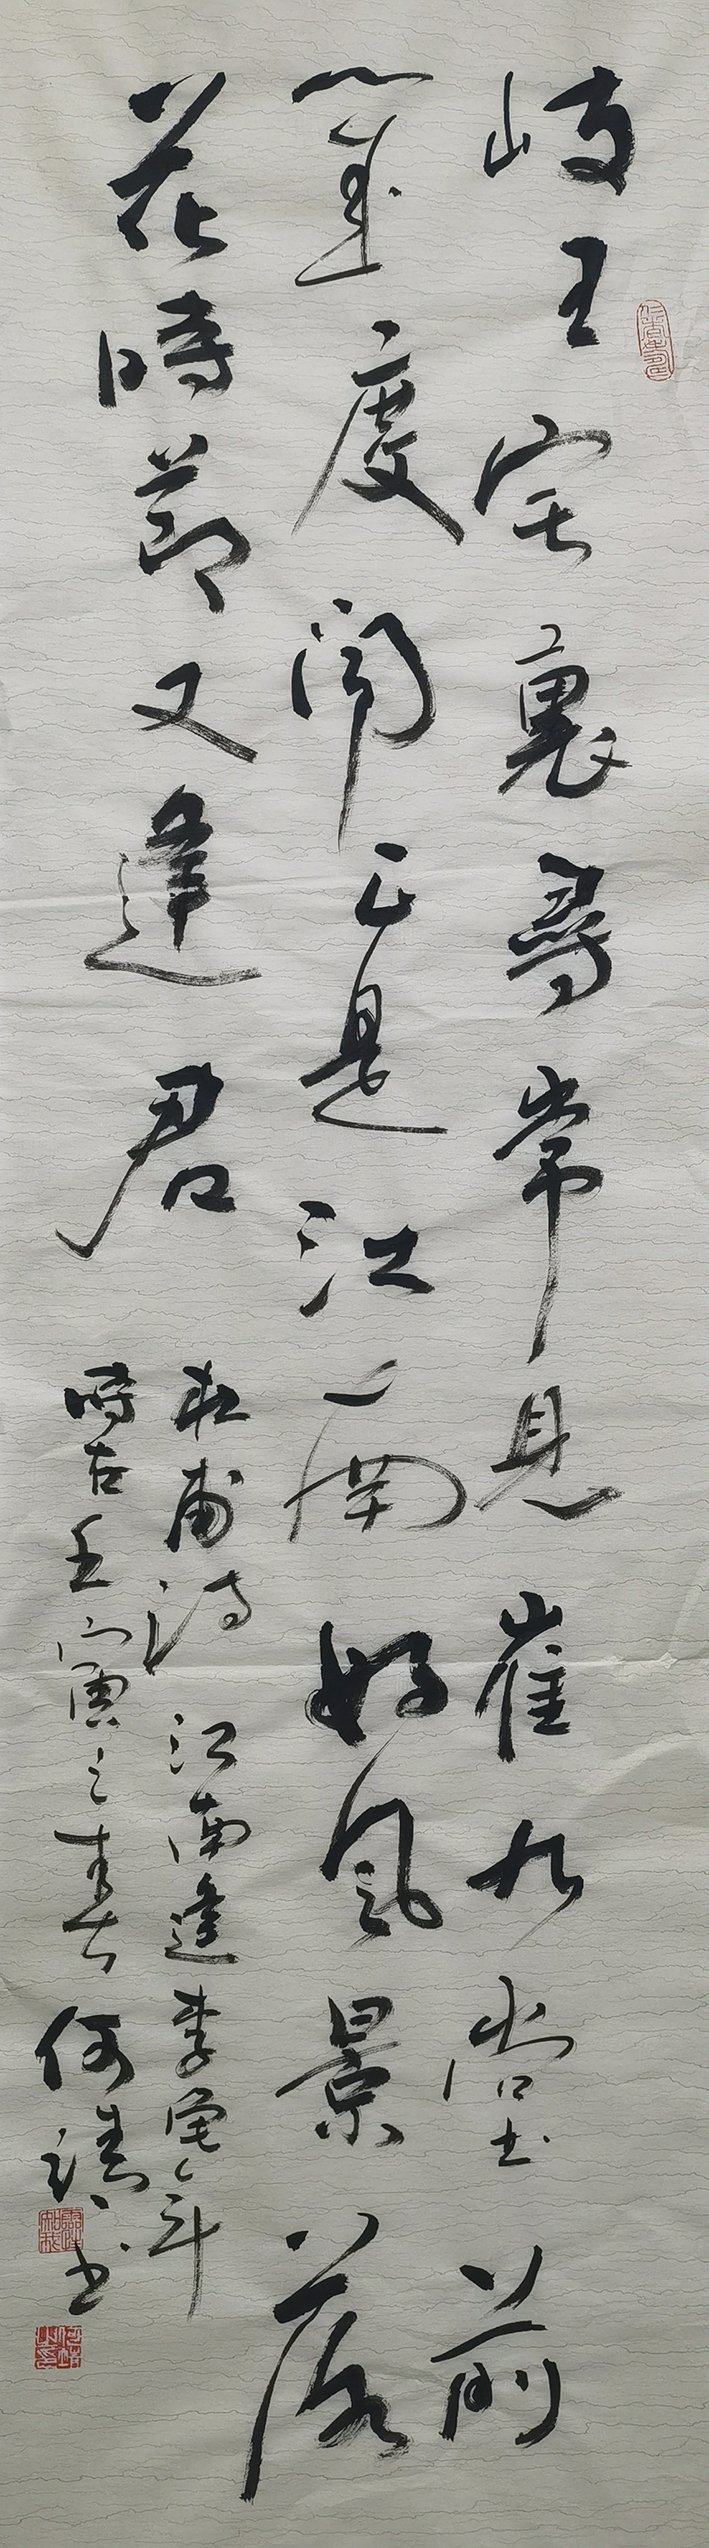 岐王宅裏尋常見崔九堂前
幾度聞正是江南好風景落
花時節又逢君
杜甫詩江南逢李龜年
時在壬寅之春何靖書